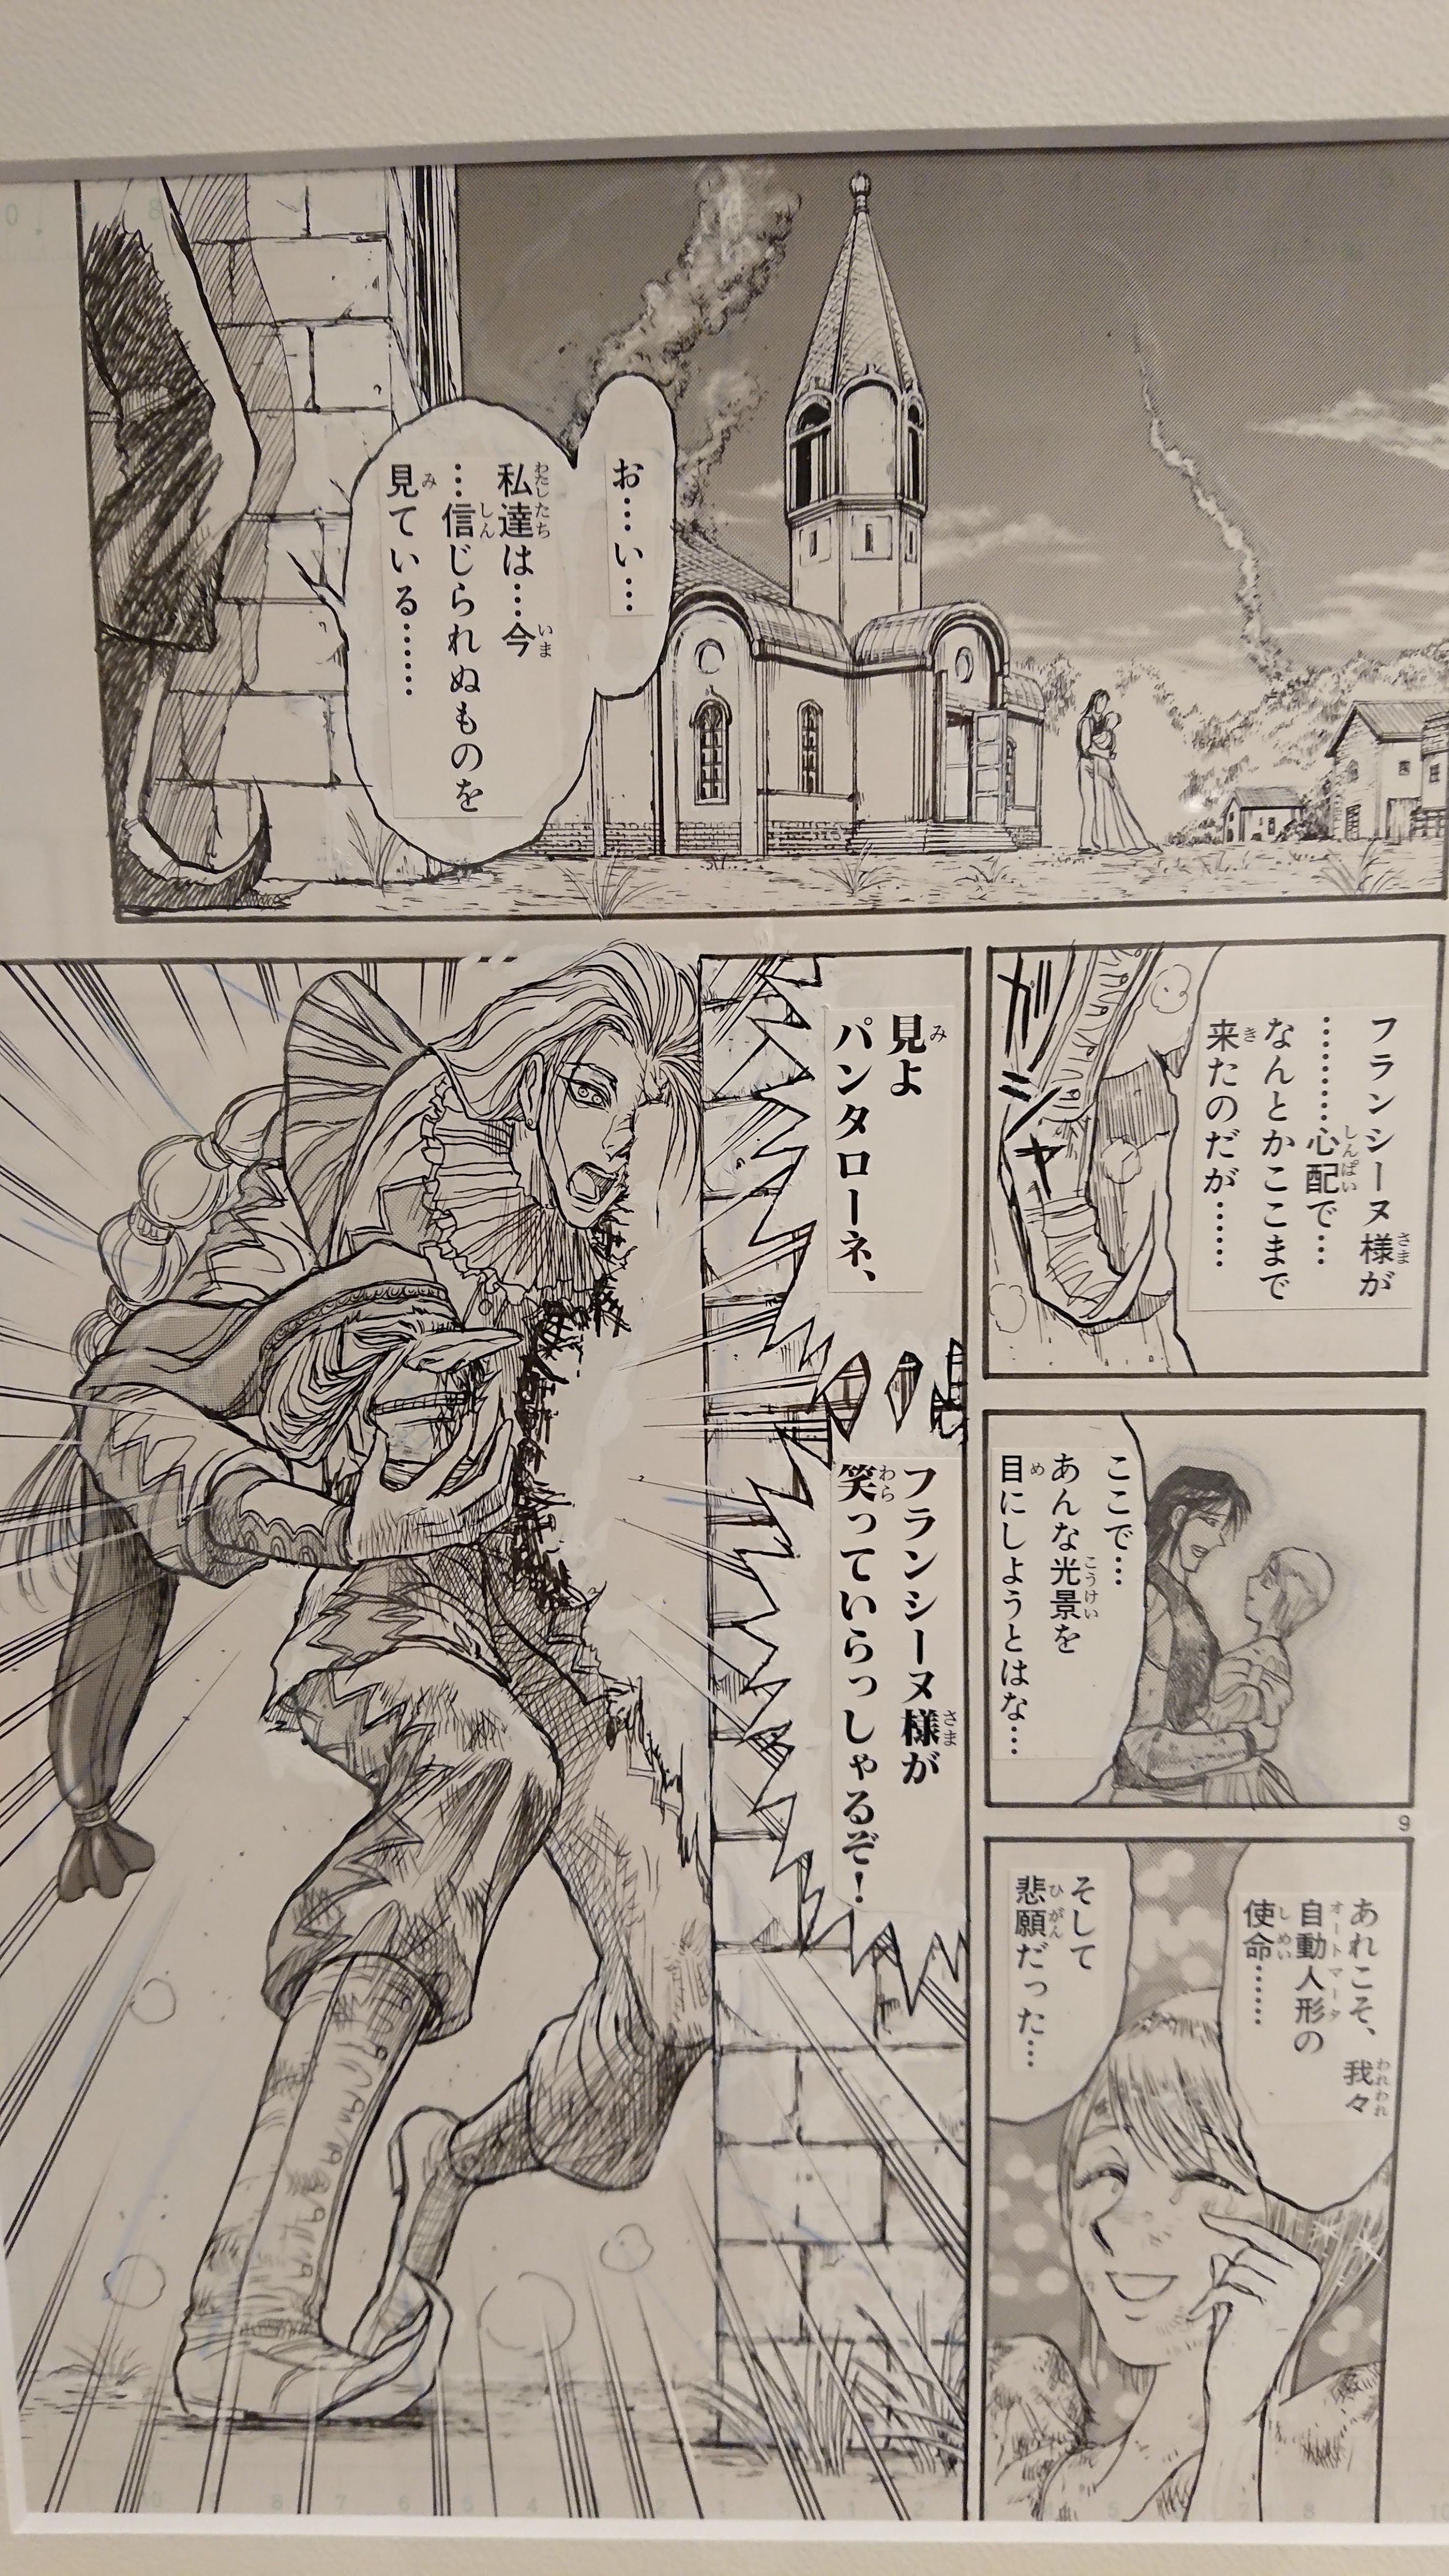 お…い…
私達は…今
…信じられぬものを
見ている……
ガシャ
フランシーヌ様が
………心配で…
なんとかここまで
来たのだが……
ここで…
あんな光景を
目にしようとはな…
9
あれこそ、我々
自動人形の
使命……
そして
悲願だった…
見よ
パンタローネ、
フランシーヌ様が
笑っていらっしゃるぞ!